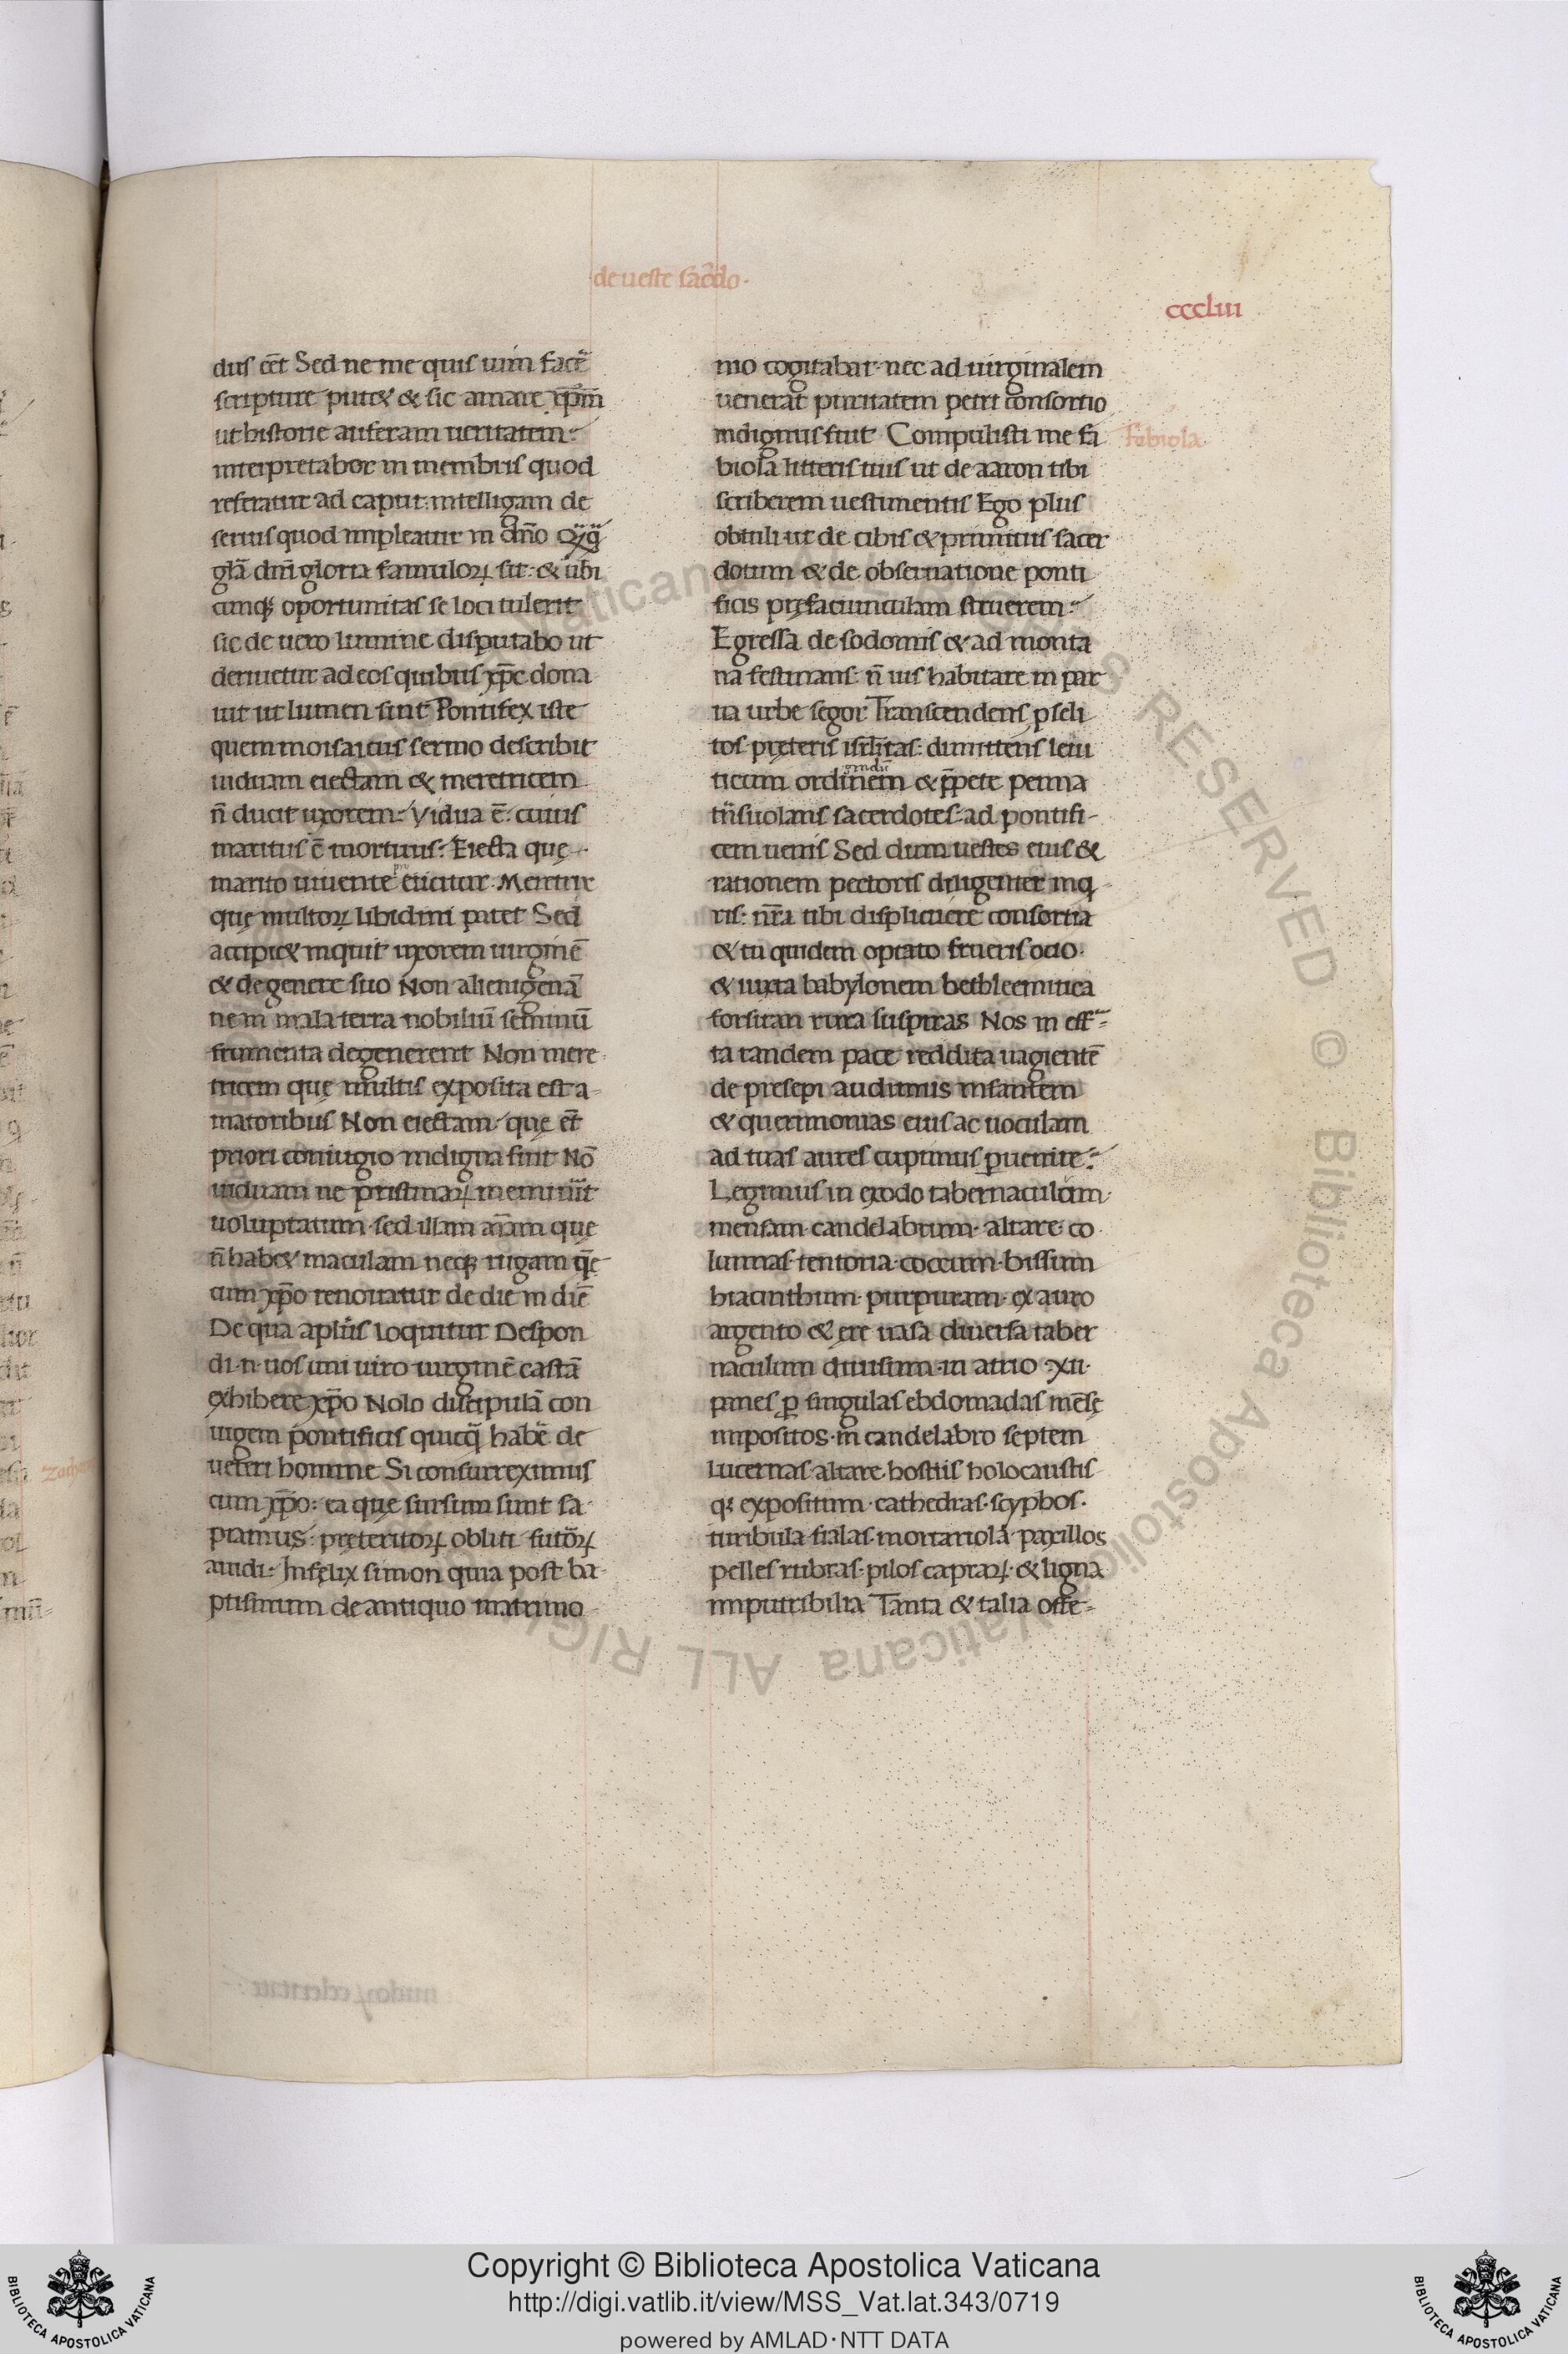 ·de ueste sac̄do·
cccliii
dus eēt Sed ne me quis uim facē
scripture putet & sic amare xp̄m
ut historie auferam ueritatem·
interpretabor in membris quod
referatur ad caput: intelligam de
seruis quod impleatur in dn̄o
gl̄a dn̄i gloria famuloꝝ sit: & ubi
cunqꝫ oportunitas se loci tulerit
sic de uero lumine disputabo ut
deriuetur ad eos quibus xp̄c dona
uit ut lumen sint Pontifex iste
quem moisaicus sermo describit
uiduam eiectam & meretricem
n̄ ducit uxorem: Vidua ē: cuius
maritus ē mortuus: Eiecta quę
marito uiuente eiicitur Meretrix
quę multoꝝ libidini patet Sed
accipiet inquit uxorem uirginē
& de genere suo Non alienigenā
ne in mala terra nobiliū seminū
frumenta degenerent Non mere
tricem quę multis exposita est a
matoribus Non eiectam quę et̄
priori coniugio indigna fuit Nō
uiduam ne pristinaꝝ meminerit
uoluptatum sed illam an̄am que
n̄ habet maculam neqꝫ rugam q̄
cum xp̄o renouatur de die in diē
De qua aplu̅s loquitur Despon
di·n·uos uni uiro uirginē castā
exhibere xp̄o Nolo discipulā con
iugem pontificis quicq̄ habē de
ueteri homine Si consurreximus
cum xp̄o: ea que sursum sunt sa
piamus: pręteritoꝝ obliti futuroꝝ
auidi: Infęlix simon quia post ba
ptismum de antiquo matrimo
nio cogitabat nec ad uirginalem
uenerat puritatem petri consortio
indignus fuit Compulisti me fa
fabiola
biola litteris tuis ut de aaron tibi
scriberem uestimentis Ego plus
obtuli ut de cibis & primitiis sacer
dotum & de obseruatione ponti
ficis pręfaciunculam struerem:
Egressa de sodomis & ad monta
na festinans: n̄ uis habitare in par
ua urbe segor Transcendens pseli
tos pręteris isrl̄itas: dimittens leui
ticum ordinem & p̄pete penna
tn̄suolans sacerdotes: ad pontifi-
cem uenis Sed dum uestes eius &
rationem pectoris diligenter inq
ris: nr̄a tibi displicuere consortia
& tu quidem optato frueris ocio·
& iuxta babylonem bethleemitica
forsitan rura suspiras Nos in eff
ta tandem pace reddita uagientē
de presepi audimus infantem
& querimonias eius ac uoculam
ad tuas aures cupimus puenire:
Legimus in exodo tabernaculum
mensam candelabrum· altare· co
lumnas· tentoria· coccum· bissum
hiacinthum· purpuram· ex auro
argento & ęre uasa diuersa taber
naculum diuisum in atrio ·xii·
panes ꝑ singulas ebdomadas mēsę
impositos· in candelabro septem
lucernas altare hostiis holocaustis
qꝫ expositum· cathedras· scyphos·
turibula· fialas· mortariola· paxillos
pelles rubras· pilos capraꝝ· & ligna
imputribilia Tanta & talia offe-
Copyright © Biblioteca Apostolica Vaticana
http://digi.vatlib.it/view/MSS_Vat.lat.343/0719
powered by AMLAD·NTT DATA
BIBLIOTECA APOSTOLICA VATICANA
BIBLIOTECA APOSTOLICA VATICANA